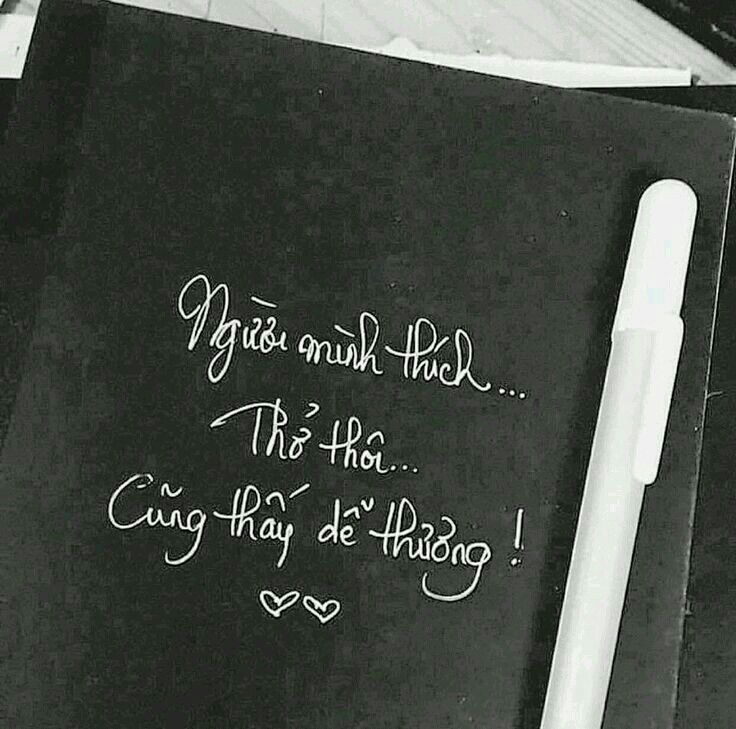 Người mình thích...
Thở thôi...
Cũng thấy dễ thương!